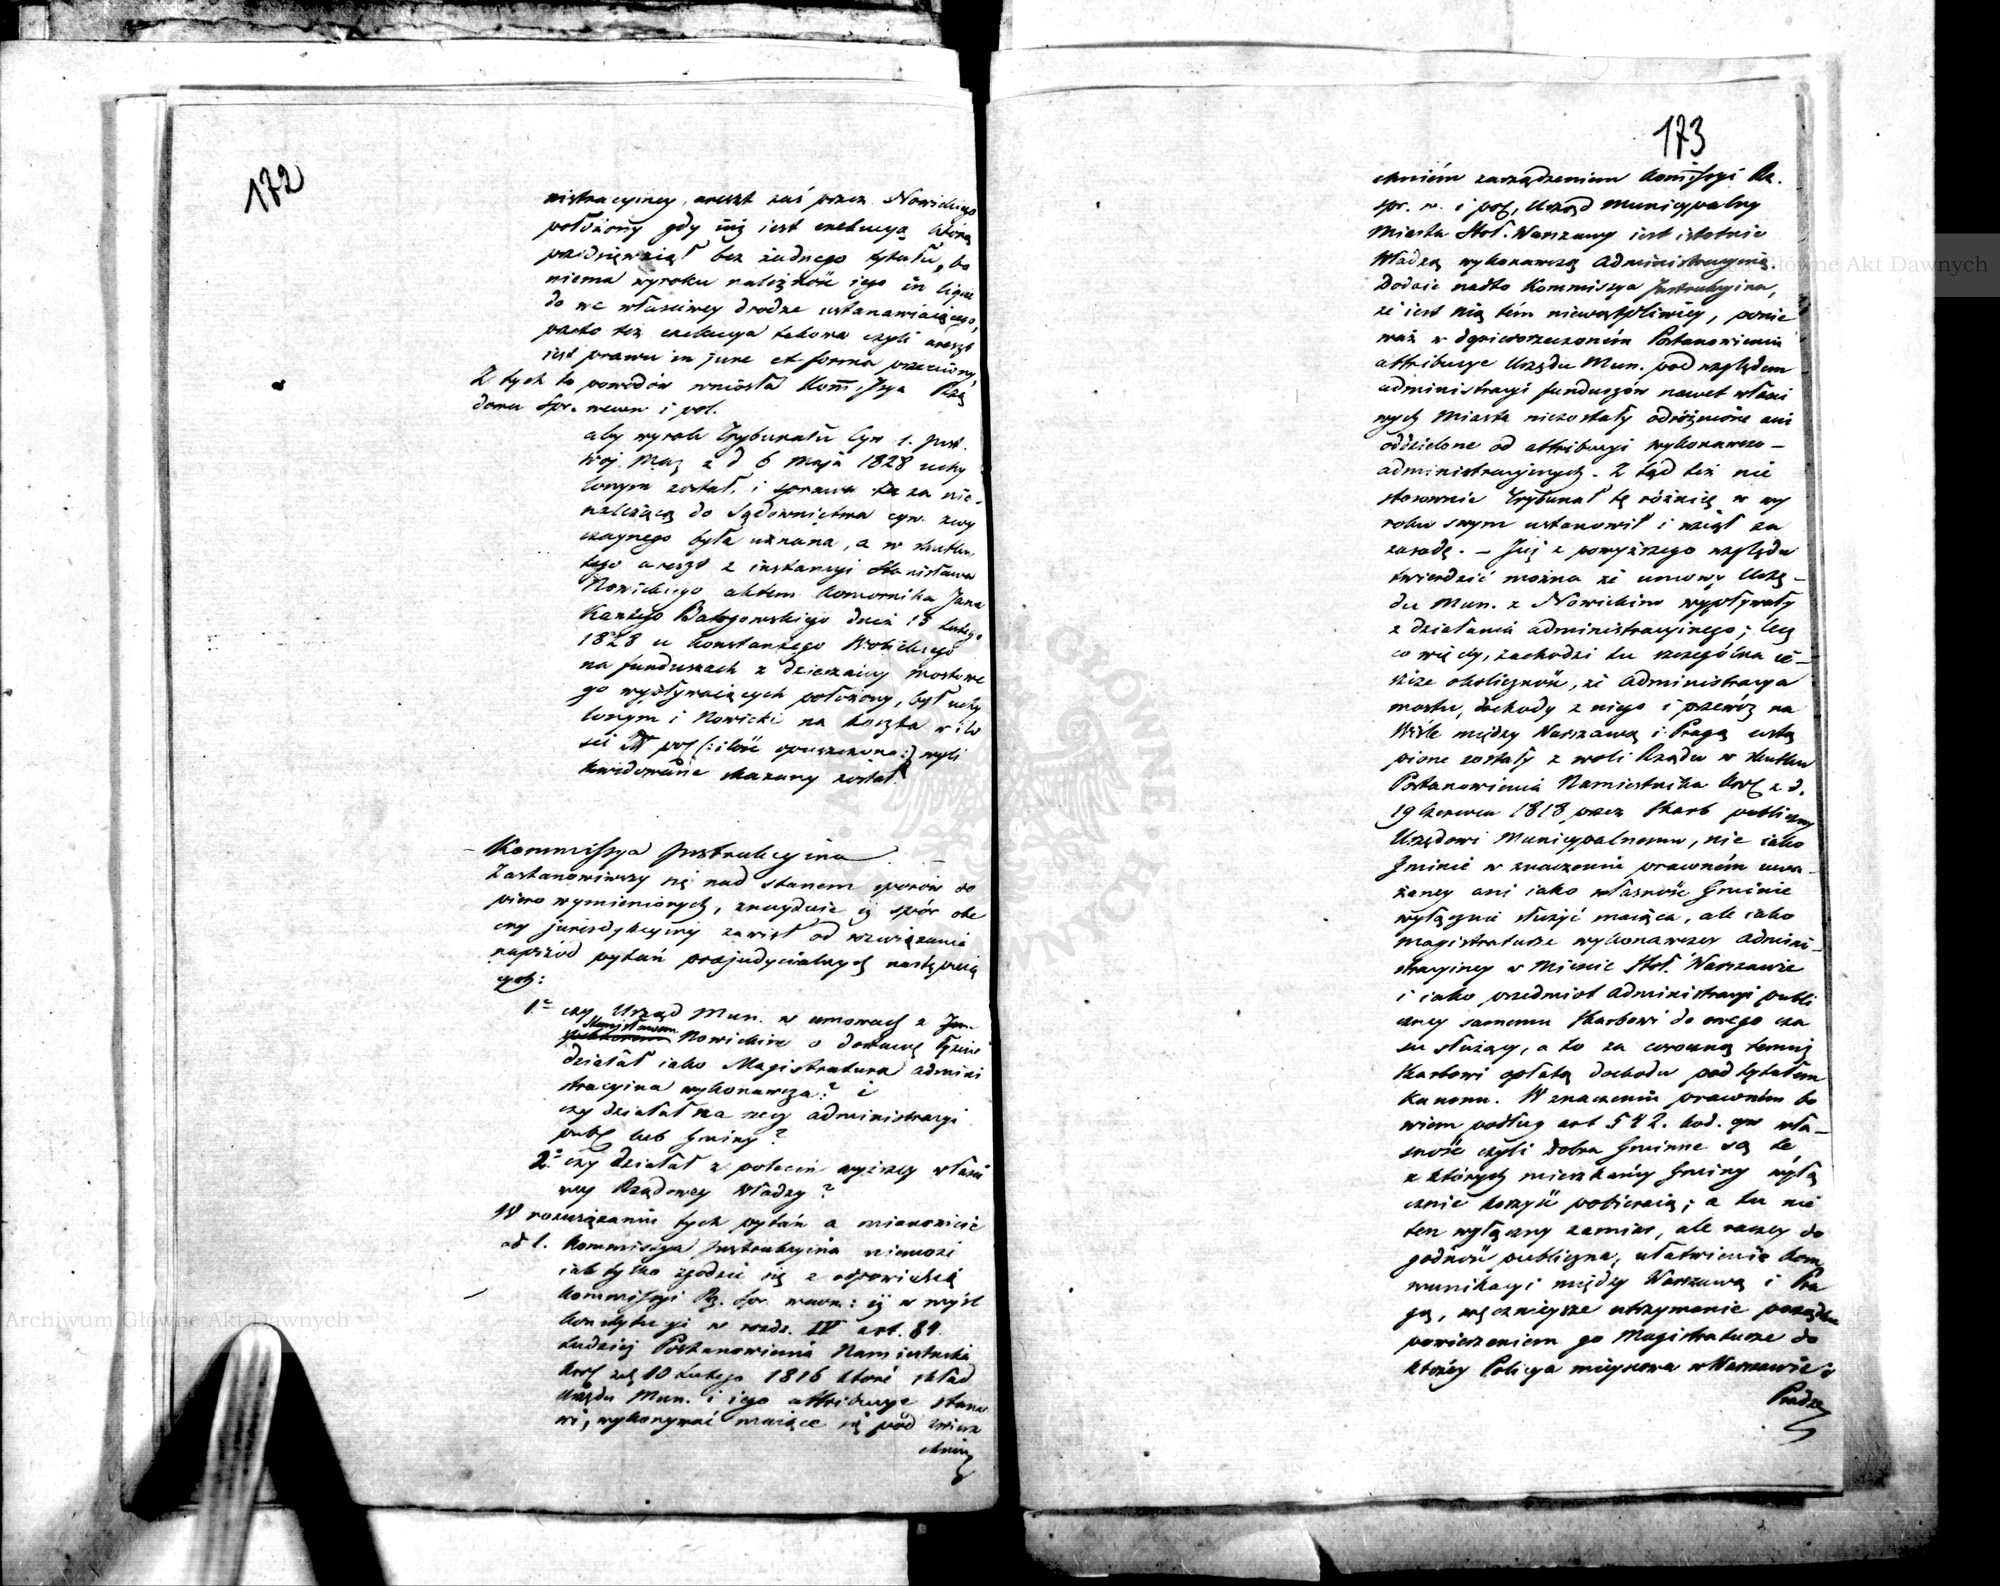 172
nistracyiney, areszt zaś przez Nowickiego
położony gdy iuż iest exekucyą którą
przedsięwziął bez żadnego tytułu, bo
niema wyroku należność iego in liquido
do we właściwey drodze ustanawiaiącego,
przeto też exekucya takowa czyli areszt
iest prawu in jure et forma przeciwny,
Z tych to powodów wniosła Kommissya Rzą
dowa Spr. wewn i pol.
aby wyrok Trybunału Cyw 1. Inst.
Woj. Maz z d 6 Maja 1828 uchy
lonym został, i sprawa ta za nie-
należącą do Sądownictwa cyw. zwy
czaynego była uznana, a w skutku
tego areszt z instancyi Stanisława
Nowickiego aktem Komornika Jana
Kantego Bałogowskiego dnia 13 Lutego
1828 u Konstantego Wolickiego
na funduszach z dzierżawy mostowe
go wypływaiących położony, był uchy
lonym i Nowicki na koszta w ilo
ści zł pol (: ilość opuszczona:) wyli
kwidowane skazany został.
Kommissya Instrukcyina
Zastanowiwszy się nad stanem sporów do
piero wymienionych, znayduie iż spór obe
cny jurisdykcyiny zawisł od rozwiązania
naprzód pytań prejudycialnych następuią
cych:
1.° czy Urząd Mun. w umowach z
Stanisławem
Nowickim o dostawę łyżew
działał iako Magistratura admini
stracyina wykonawcza? i
czy działał na rzecz administracyi
publ lub Gminy?
2.° czy działał z poleceń wyższey właści
wey Rządowey Władzy?
W rozwiązaniu tych pytań a mianowicie
ad 1. Kommissya Instrukcyina niemoże
iak tylko zgodzić się z odpowiedzią
Kommissyi Rz. Spr. wewn: iż w myśl
Konstytucyi w rozdz. IV art. 84.
tudzież Postanowienia Namiestnika
Król z d 10 Lutego 1816 które skład
Urzędu Mun. i iego attribucye stano
wi, wykonywać maiące się pod zwierz
chnim
173
chniém zarządzeniem Kommissyi Rz.
spr. w. i pol, Urząd Municypalny
Miasta Stoł. Warszawy iest istotnie
Władzą wykonawczą Administracyiną.
Dodaie nadto Kommissya Instrukcyina,
że iest nią tém niewątpliwiey, ponie
waż w dopierorzeczoném Postanowieniu
attribucye Urzędu Mun. pod względem
administracyi funduszów nawet właści
wych Miasta niezostały odróżnione ani
oddzielone od attribucyi wykonawczo-
administracyinych. Z tąd też nie
stosownie Trybunał tę różnicę w wy
roku swym ustanowił i wziął za
zasadę. – Już z powyższego względu
twierdzić można że umowy Urzę-
du Mun. z Nowickim wypływały
z działania administracyinego; lecz
co więcey, zachodzi tu szczególna ie-
szcze okoliczność, że Administracya
mostu, dochody z niego i przewóz na
Wiśle między Warszawą i Pragą ustą
pione zostały z woli Rządu w skutku
Postanowienia Namiestnika Król z d.
19 Czerwca 1818 przez Skarb publiczny
Urzędowi Municypalnemu, nie iako
Gminie w znaczeniu prawném uwa-
żaney ani iako własność Gminie
wyłącznie służyć maiąca, ale iako
magistraturze wykonawczey Admini-
stracyiney w Mieście Stoł. Warszawie
i iako przedmiot Administracyi publi
czney samemu Skarbowi do owego cza
su służący, a to za coroczną temuż
Skarbowi opłatą dochodu pod tytułem
Kanonu. W znaczeniu prawném bo
wiem podług art 542. Kod. cyw wła-
sność czyli dobra Gminne są te
z których mieszkańcy Gminy wyłą
cznie korzyść pobieraią; a tu nie
ten wyłączny zamiar, ale raczey do
godność publiczna, ułatwienie kom
munikacyi między Warszawą i Pra
gą, ręcznieysze utrzymanie porządku
powierzeniem go Magistraturze do
którey Policya mieyscowa w Warszawie i
Pradze